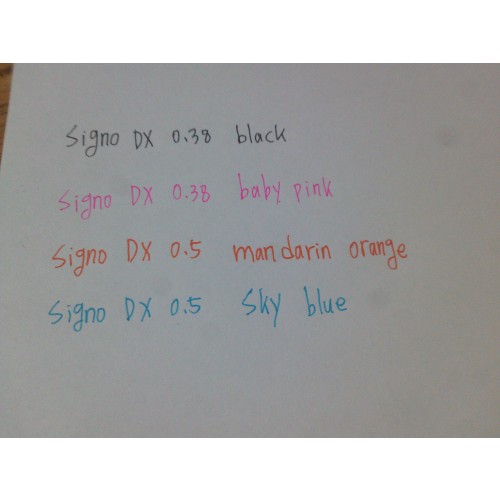 Signo DX 0.38 black
Signo DX 0.38 baby pink
Signo DX 0.5 mandarin orange
Signo DX 0.5 Sky blue